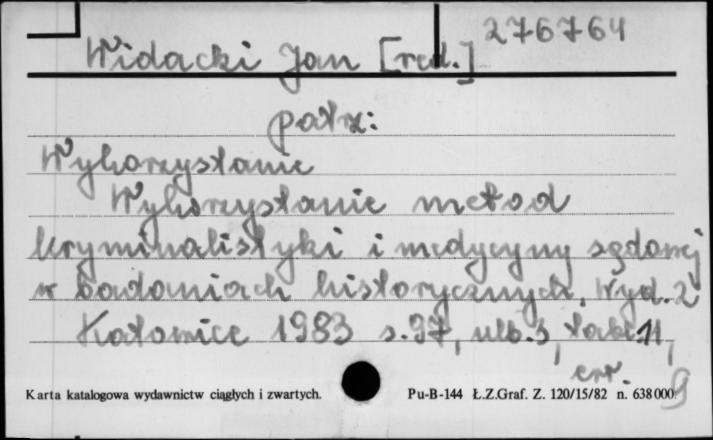 276764
Widacki Jan [red.]
patrz:
Wykorzystanie
Wykorzystanie metod
kryminalistyki i medycyny sądowej
w badaniach historycznych. Wyd. 2
Katowice 1983 s. 97, nlb. 3, tabl. 11,
err.
Karta katalogowa wydawnictw ciągłych i zwartych. Pu-B-144 Ł.Z.Graf. Z. 120/15/82 n. 638 000
9